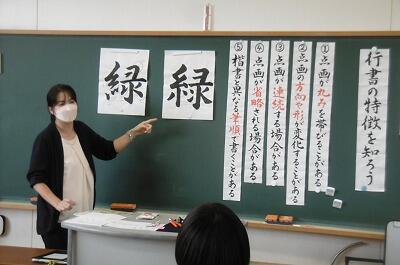 行書の特徴を知ろう
①点画が丸みを帯びることがある
②点画の方向や形が変化することがある
③点画が連続する場合がある
④点画が省略される場合がある
⑤楷書と異なる筆順で書くことがある
緑
緑